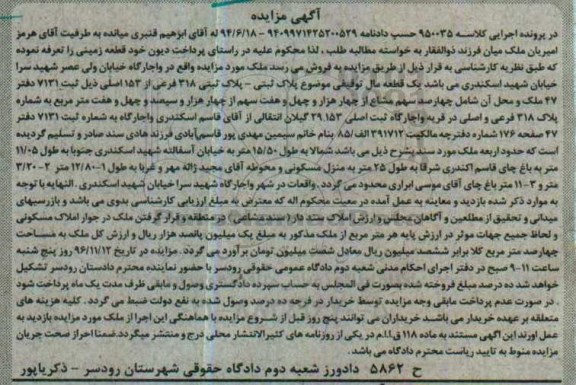 آگهی مزایده
در پرونده اجرایی کلاسه ۹۵۰۰۳۵ حسب دادنامه ۹۴۰۹۹۷۱۴۲۵۲۰۰۵۳۹ - ۹۴/۶/۱۸ له آقای ابراهیم قنبری میانده به طرفیت آقای هرمز
امیریان ملک میان فرزند ذوالفقار به خواسته مطالبه طلب ، لذا محکوم علیه در راستای پرداخت دیون خود قطعه زمینی را تعرفه نموده
که طبق نظریه کارشناسی به قرار ذیل از طریق مزایده به فروش می رسد ملک مورد مزایده واقع در واجارگاه خیابان ولی عصر شهید سرا
خیابان شهید اسکندری می باشد یک قطعه مال توقیفی موضوع پلاک ثبتی – پلاک ثبتی ۳۱۸ فرعی از ۱۵۳ اصلی ذیل ثبت ۷۱۳۱ دفتر
۴۷ ملک و محل آن شامل چهارصد سهم مشاع از چهار هزار و چهل و هفت سهم از چهار هزار و سیصد و چهل و هفت متر مربع به شماره
پلاک ۳۱۸ فرعی و اصلی در قریه واجارگاه ثبت اصلی ۲۹.۱۵۳ گیلان انتقالی از آقای قاسم اسکندری واجارگاه به شماره ثبت ۷۱۳۱ دفتر
۴۷ صفحه ۱۷۶ شماره دفترچه مالکیت ۳۹۱۷۱۲ الف/۸۵ بنام خانم سیمین مهدی پور قاسم آبادی فرزند هادی سند صادر و تسلیم گردیده
است که حدود اربعه ملک مورد سند بشرح ذیل می باشد شمالا به طول ۱۵/۵۰ متر به خیابان آسفالته شهید اسکندری جنوبا به طول ۱۱/۰۵
متر به باغ چای قاسم اکندری شرقا به طول ۲۵ متر به منزل مسکونی و محوطه آقای مجید ژاله مهر و غربا به طول ۱-۱۲/۸۰ متر ۲-۳/۲۰
متر و ۳-۱۱ متر باغ چای آقای موسی ابراری محدود می گردد . واقعات در شهر واجارگاه شهید سرا خیابان شهید اسکندری . النهایه با توجه
به موارد ذکر شده بازدید و معاینه به عمل آمده در معیت محکوم اله که معترض به مبلغ ارزیابی کارشناسی بدوی می باشد و بازرسیهای
میدانی و تحقیق از مطلعین و آگاهان مجلس و ارزش املاک سند دار (سند مشاعی) در منطقه و قرار گرفتن ملک در جوار املاک مسکونی
و لحاظ جمیع جهات موثر در ارزش پایه هر متر مربع از ملک مذکور به مبلغ یک میلیون پانصد هزار ریال و ارزش کل ملک به مساحت
چهارصد متر مربع کلا برابر ششصد میلیون ریال معادل شصت میلیون تومان برآورد می گردد . مزایده در تاریخ ۹۶/۱۱/۱۲ روز پنج شنبه
ساعت ۱۱-۹ صبح در دفتر اجرای احکام مدنی شعبه دوم دادگاه عمومی حقوقی رودسر با حضور نماینده محترم دادستان رودسر تشکیل
خواهد شد ده درصد مبلغ فروخته شده بصورت فی المجلس به حساب سپرده دادگستری وصول و مابقی ظرف مدت یک ماه پرداخت شود
. در صورت عدم پرداخت مابقی وجه مزایده توسط خریدار در فرجه ده درصد وصول شده به نفع دولت ضبط می گردد . کلیه هزینه های
متعلقه بر عهده خریدار می باشد خریداران می توانند پنج روز قبل از شروع مزایده با هماهنگی این اجرا از ملک مورد مزایده بازدید به
عمل آورند این آگهی مستند به ماده ۱۱۸ ق.ا.ا.م در یکی از روزنامه های کثیرالانتشار محلی درج و منتشر میگردد. ضمنا احراز صحت جریان
مزایده منوط به تایید ریاست محترم دادگاه می باشد.
ح ۵۸۶۲ دادورز شعبه دوم دادگاه حقوقی شهرستان رودسر – ذکریاپور